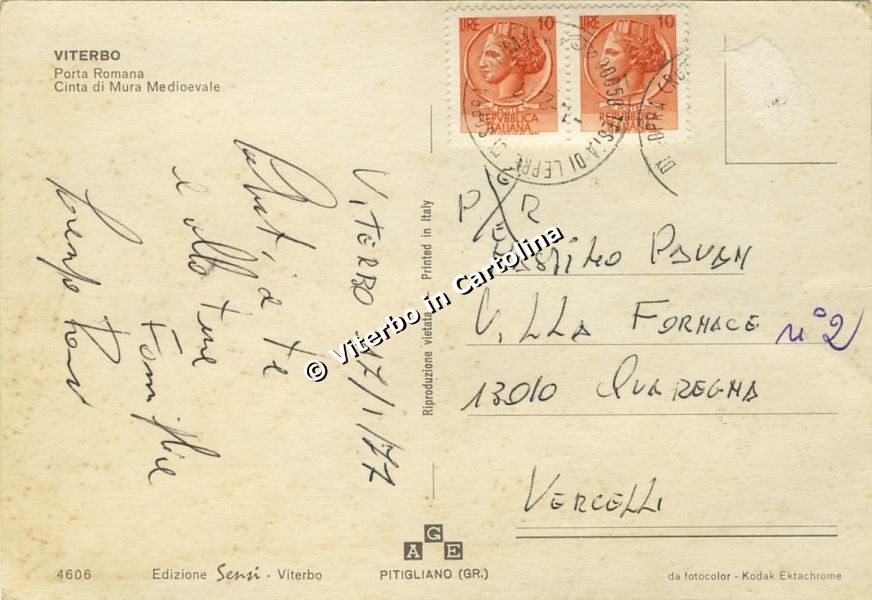 VITERBO
Porta Romana
Cinta di Mura Medioevale
LIRE 10
POSTE
REPVBBLICA
ITALIANA
LIRE 10
POSTE
REPVBBLICA
ITALIANA
VITERBO 17/1/77
a te
e alla tua
Famiglia
Riproduzione vietata - Printed in Italy
P R
PAVAN
VILLA FORNACE n° 2
13010 QUAREGNA
VERCELLI
© Viterbo in Cartolina
AGE
4606 Edizione Sensi - Viterbo
PITIGLIANO (GR.)
da fotocolor - Kodak Ektachrome